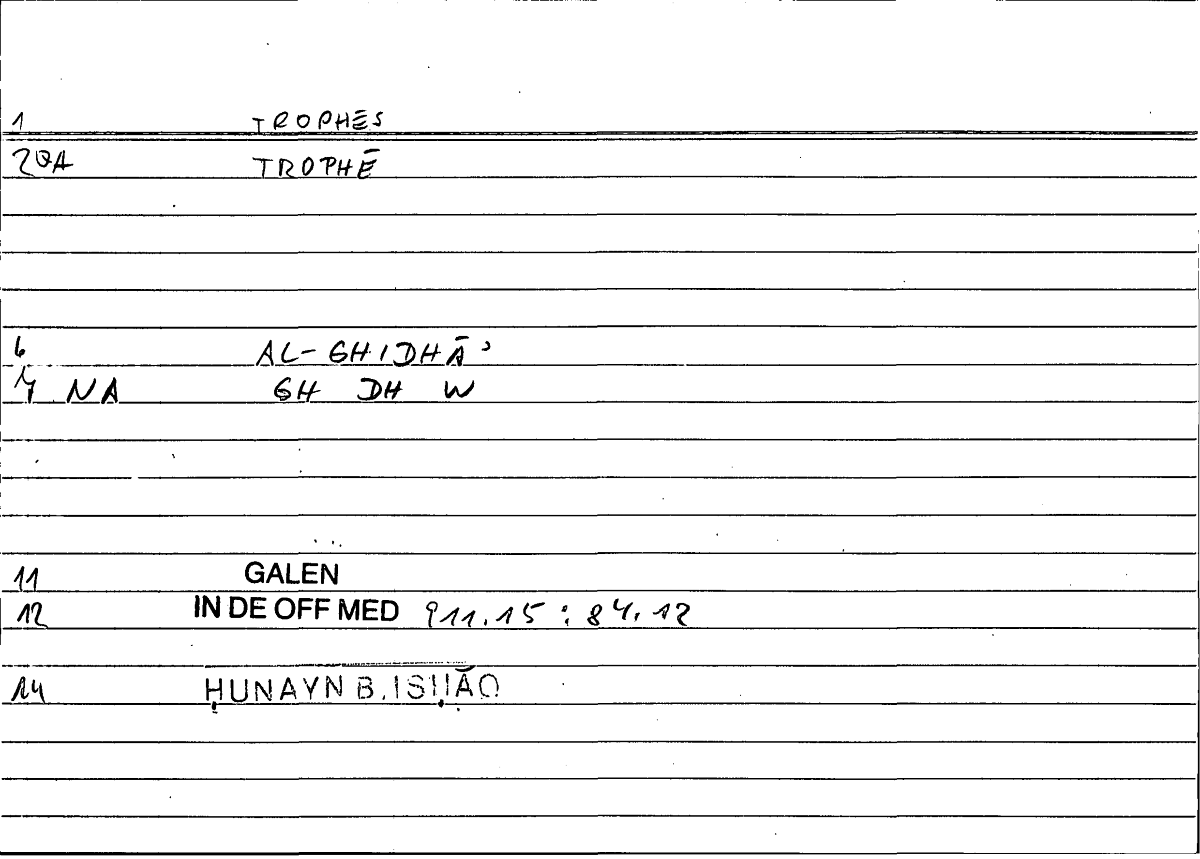 1 TROPHĒS
2QA TROPHĒ
6 AL-GHIDHĀʾ
7 NA GH DH W
11 GALEN
12 IN DE OFF MED 911.15 : 84.12
14 ḤUNAYN B. ISḤĀQ